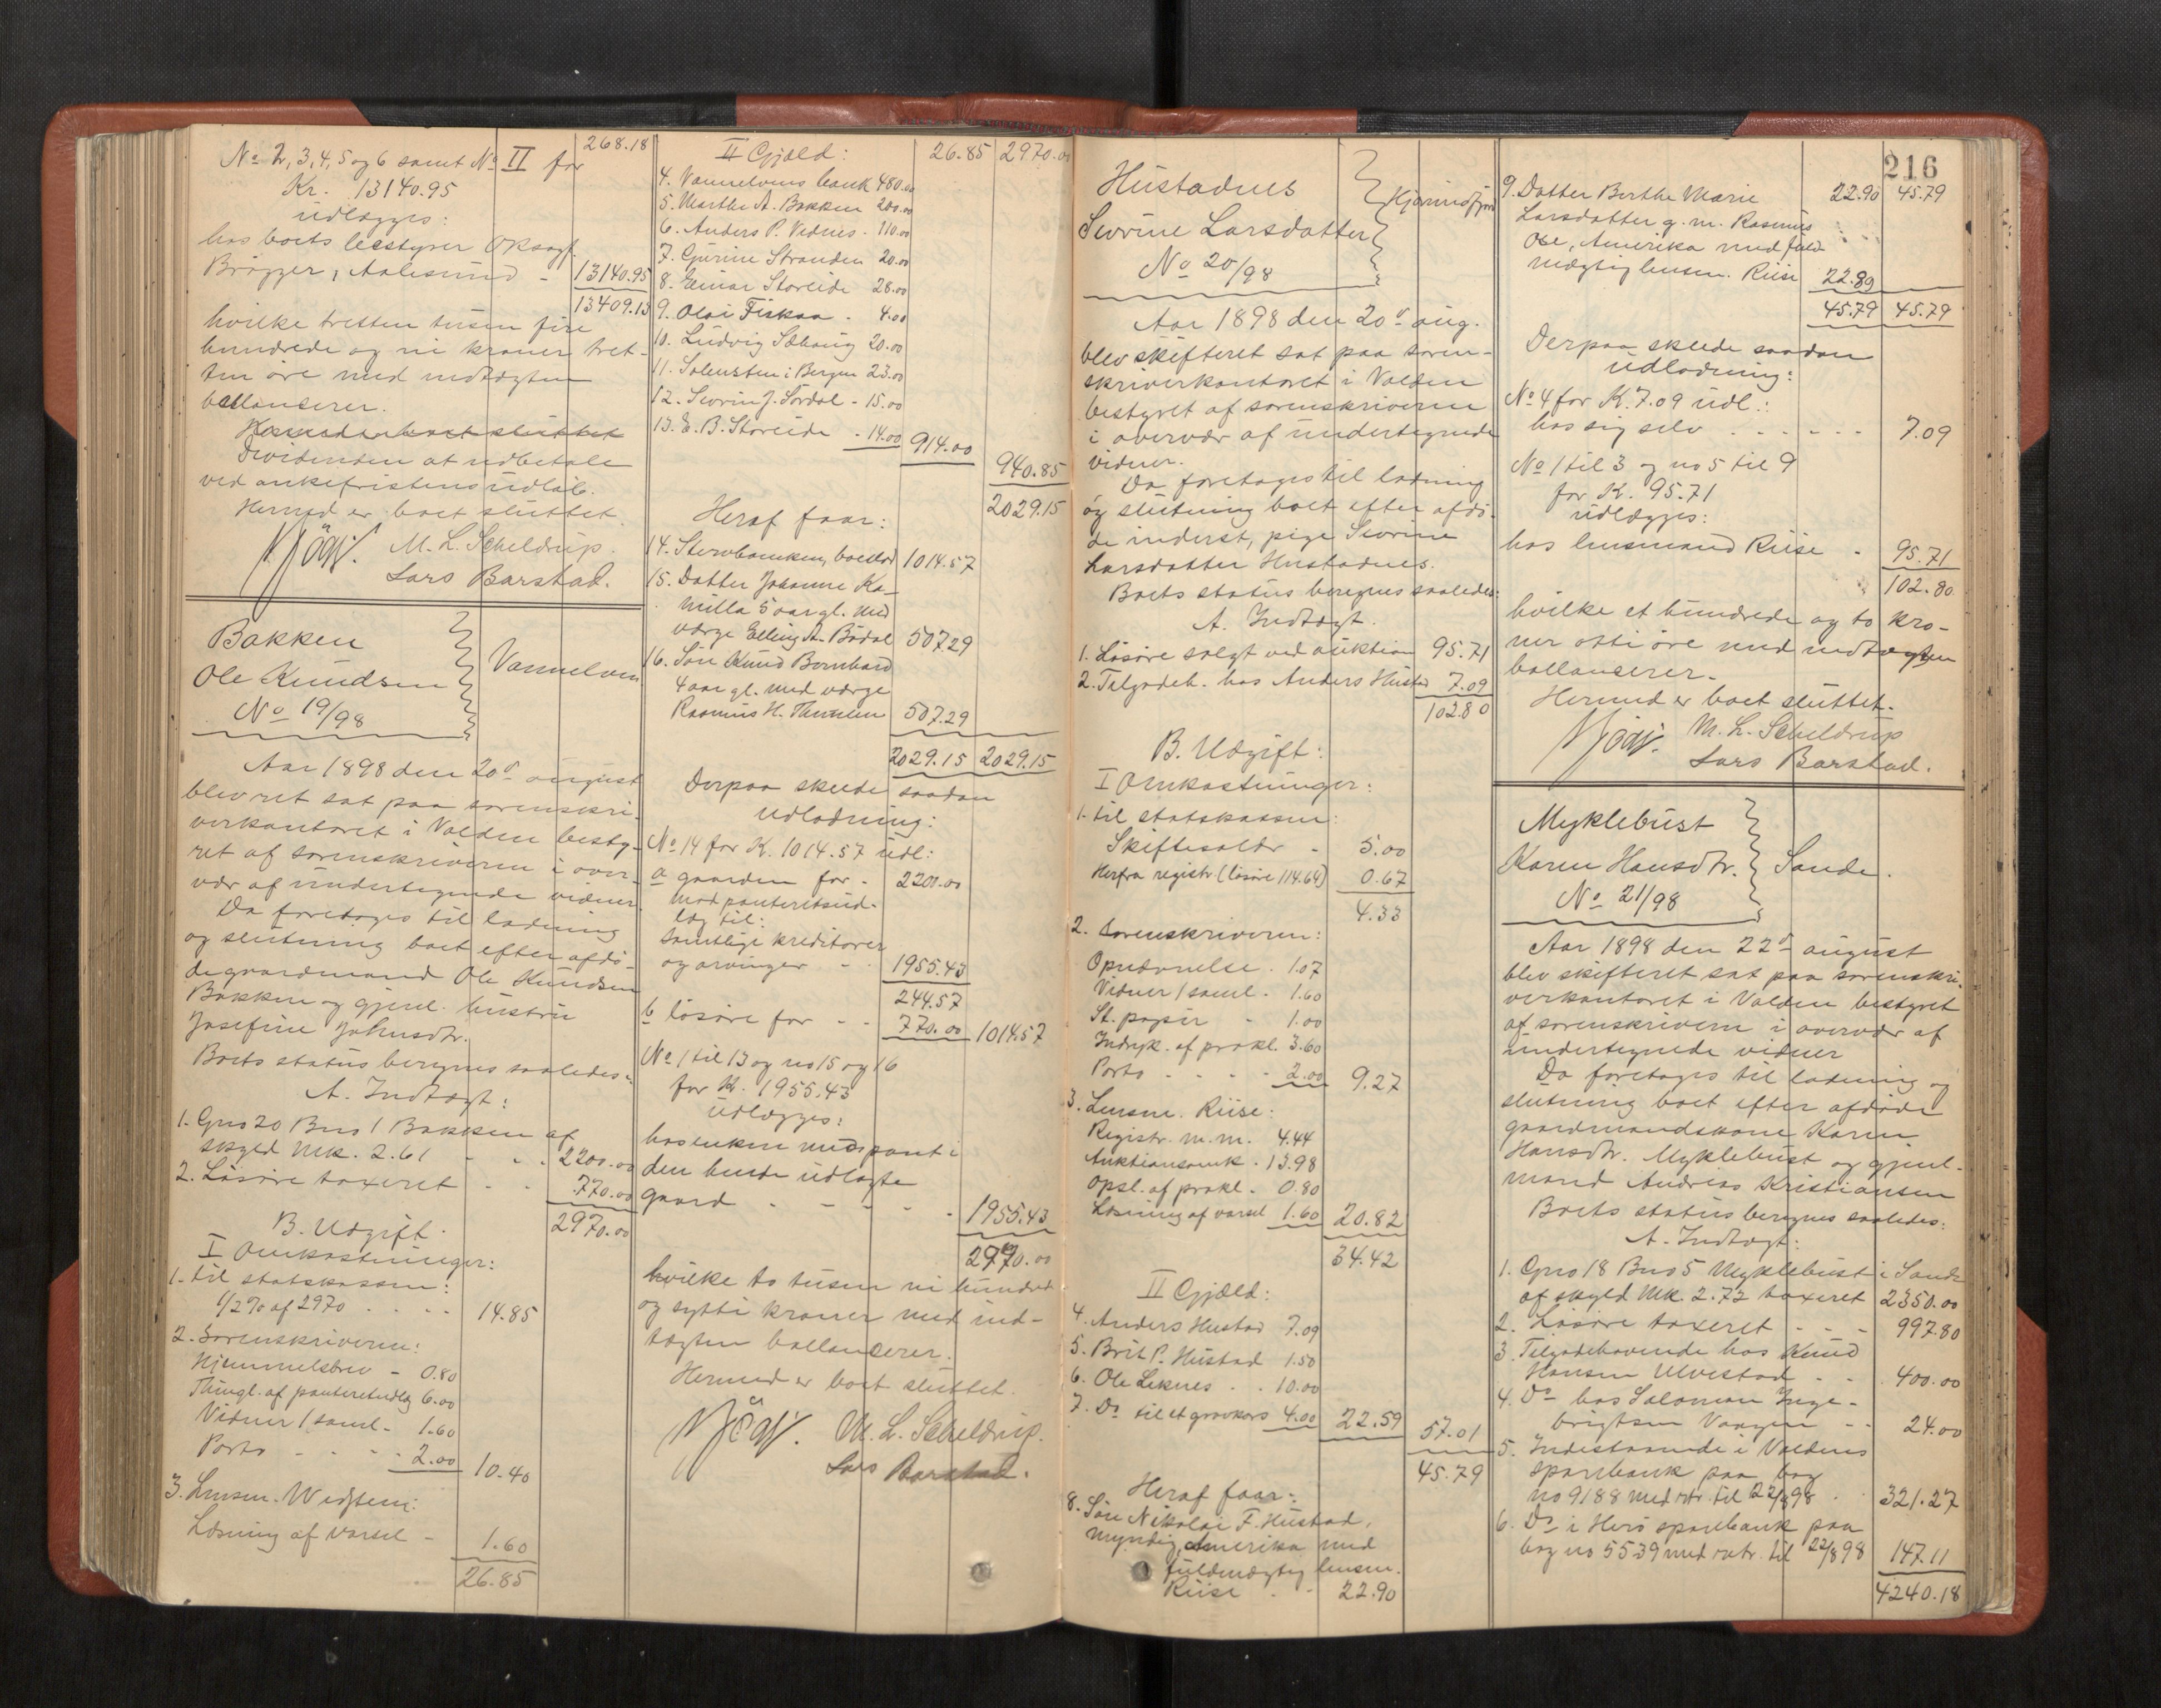 268.18
No 2, 3, 4, 5 og 6 samt No II for
Kr. 13140.95
udlægges:
hos boets bestyrer Oksagf.
Brögger, Aalesund - 13140.95
13409.13
hvilke tretten tusen fire
hundrede og ni kroner tret-
ten øre med indtægten
ballanserer.
Hermed er boet sluttet
Dividenden at udbetale
ved ankefristens udløb.
Hermed er boet sluttet.
M. L. Scheldrup.
Lars Barstad.
Bakken
Ole Knudsen
No 19/98
Vannelven
Aar 1898 den 20de august
blev ret sat paa sorenskri-
verkontoret i Volden besty-
ret af sorenskriveren i over-
vær af undertegnede vidner.
Da foretoges til lodning
og slutning boet efter afdø-
de gaardmand Ole Knudsen
Bakken og gjenl. hustru
Josefine Johnsdtr.
Boets status beregnes saaledes:
A. Indtægt:
1. Gno 20 Bno 1 Bakken af
skyld Mk. 2.61 - - - 2200.00
2. Løsøre taxeret - - 770.00
2970.00
B. Udgift.
I Omkostninger:
1. til statskassen:
1/2 % af 2970 . . . . 14.85
2. Sorenskriveren:
Hjemmelsbrev - 0.80
Thingl. af panteretudlæg 6.00
Vidner 1 saml. - 1.60
Porto - - - - 2.00 10.40
3. Lensm. Widsteen:
Læsning af varsel - 1.60
26.85
II Gjæld: 26.85 2970.00
4. Vannelvens bank 480.00
5. Marthe A. Bakken 200.00
6. Anders P. Vednes - 110.00
7. Gurine Stranden 20.00
8. Einar Storeide 28.00
9. Olai Fiskaa - 4.00
10. Ludvig Sæhaug 20.00
11. Solensten i Bergen 23.00
12. Severin J. Sördal - 15.00
13. E. B. Storeide - 14.00 914.00
940.85
2029.15
Heraf faar:
14. Stervboenken, boeslod 1014.57
15. Datter Johanne Ka-
milla 5 aar gl. med
værge Elling A. Bödal 507.29
16. Søn Knud Bernhard
4 aar gl. med værge
Rasmus H. Thunem 507.29
2029.15 2029.15
Derpaa skeede saadan
udlodning:
No 14 for K. 1014.57 udl:
a gaarden for - 2200.00
mod panteretsud-
læg til:
samtlige kreditorer
og arvinger - - 1955.43
244.57
b løsøre for - - 770.00 1014.57
No 1 til 13 og no 15 og 16
for K. 1955.43
udlægges:
hos enken med pant i
den hende udlagte
gaard - - - - - 1955.43
2970.00
hvilke to tusen ni hundrede
og sytti kroner med ind-
tægten ballanserer.
Hermed er boet sluttet.
M. L. Scheldrup.
Lars Barstad.
Hustadnes
Severine Larsdatter
No 20/98
Hjørundfjord
Aar 1898 den 20de aug.
blev skifteret sat paa soren-
skriverkontoret i Volden
bestyret af sorenskriveren
i overvær af undertegnede
vidner.
Da foretoges til lodning
og slutning boet efter afdø-
de inderst, pige Severine
Larsdatter Hustadnes.
Boets status beregnes saaledes:
A. Indtægt.
1. Løsøre solgt ved auktion 95.71
2. Tilgodeh. hos Anders Hustad 7.09
102.80
B. Udgift:
I Omkostninger:
1. til statskassen:
Skiftesaldr - 5.00
Herfra registr. (løsøre 114.64) 0.67
4.33
2. Sorenskriveren:
Opnævnelse . 1.07
Vidner 1 saml. - 1.60
St. papir - 1.00
Indryk. af prokl. 3.60
Porto - - - - 2.00 9.27
3. Lensm. Riise:
Registr. m.m. 4.44
Auktionsomk. 13.98
Opsl. af prokl. - 0.80
Læsning af varsel 1.60 20.82
34.42
II Gjæld:
4. Anders Hustad 7.09
5. Brit P. Hustad 1.50
6. Ole Leknes . . 10.00
7. Do til et gravkors 4.00 22.59
57.01
45.79
Heraf faar:
8. Søn Nikolai F. Hustad,
myndig, Amerika med
fuldmægtig lensm.
Riise . . 22.90
216
22.90 45.79
9. Datter Berthe Marie
Larsdatter g. m. Rasmus
Ose, Amerika med fuld-
mægtig lensm. Riise 22.89
45.79 45.79
Derpaa skeede saadan
udlodning:
No 4 for K. 7.09 udl.:
hos sig selv - - - - - - 7.09
No 1 til 3 og no 5 til 9
for K. 95.71
udlægges:
hos lensmand Riise - 95.71
102.80
hvilke et hundrede og to kro-
ner otti øre med indtægten
ballanserer.
Hermed er boet sluttet.
M. L. Scheldrup
Lars Barstad.
Myklebust
Karen Hansdtr.
No 21/98
Sande.
Aar 1898 den 22de august
blev skifteret sat paa sorenskri-
verkontoret i Volden bestyret
af sorenskriveren i overvær af
undertegnede vidner
Da foretoges til lodning og
slutning boet efter afdøde
gaardmandskone Karen
Hansdtr. Myklebust og gjenl.
mand Andreas Kristiansen
Boets status beregnes saaledes:
A. Indtægt:
1. Gno 18 Bno 5 Myklebust i Sande
af skyld Mk. 2.72 taxeret 2350.00
2. Løsøre taxeret - - - 997.80
3. Tilgodehavende hos Knud
Hansen Ulvestad - - 400.00
4. Do hos Salomon Inge-
brigtsen Vaagen - - 24.00
5. Indestaaende i Voldens
sparebank paa bog
no 9188 med rtr. til 22/8 98 . 321.27
6. Do i Herø sparebank paa
bog no 5539 med rtr. til 22/8 98 147.11
4240.18